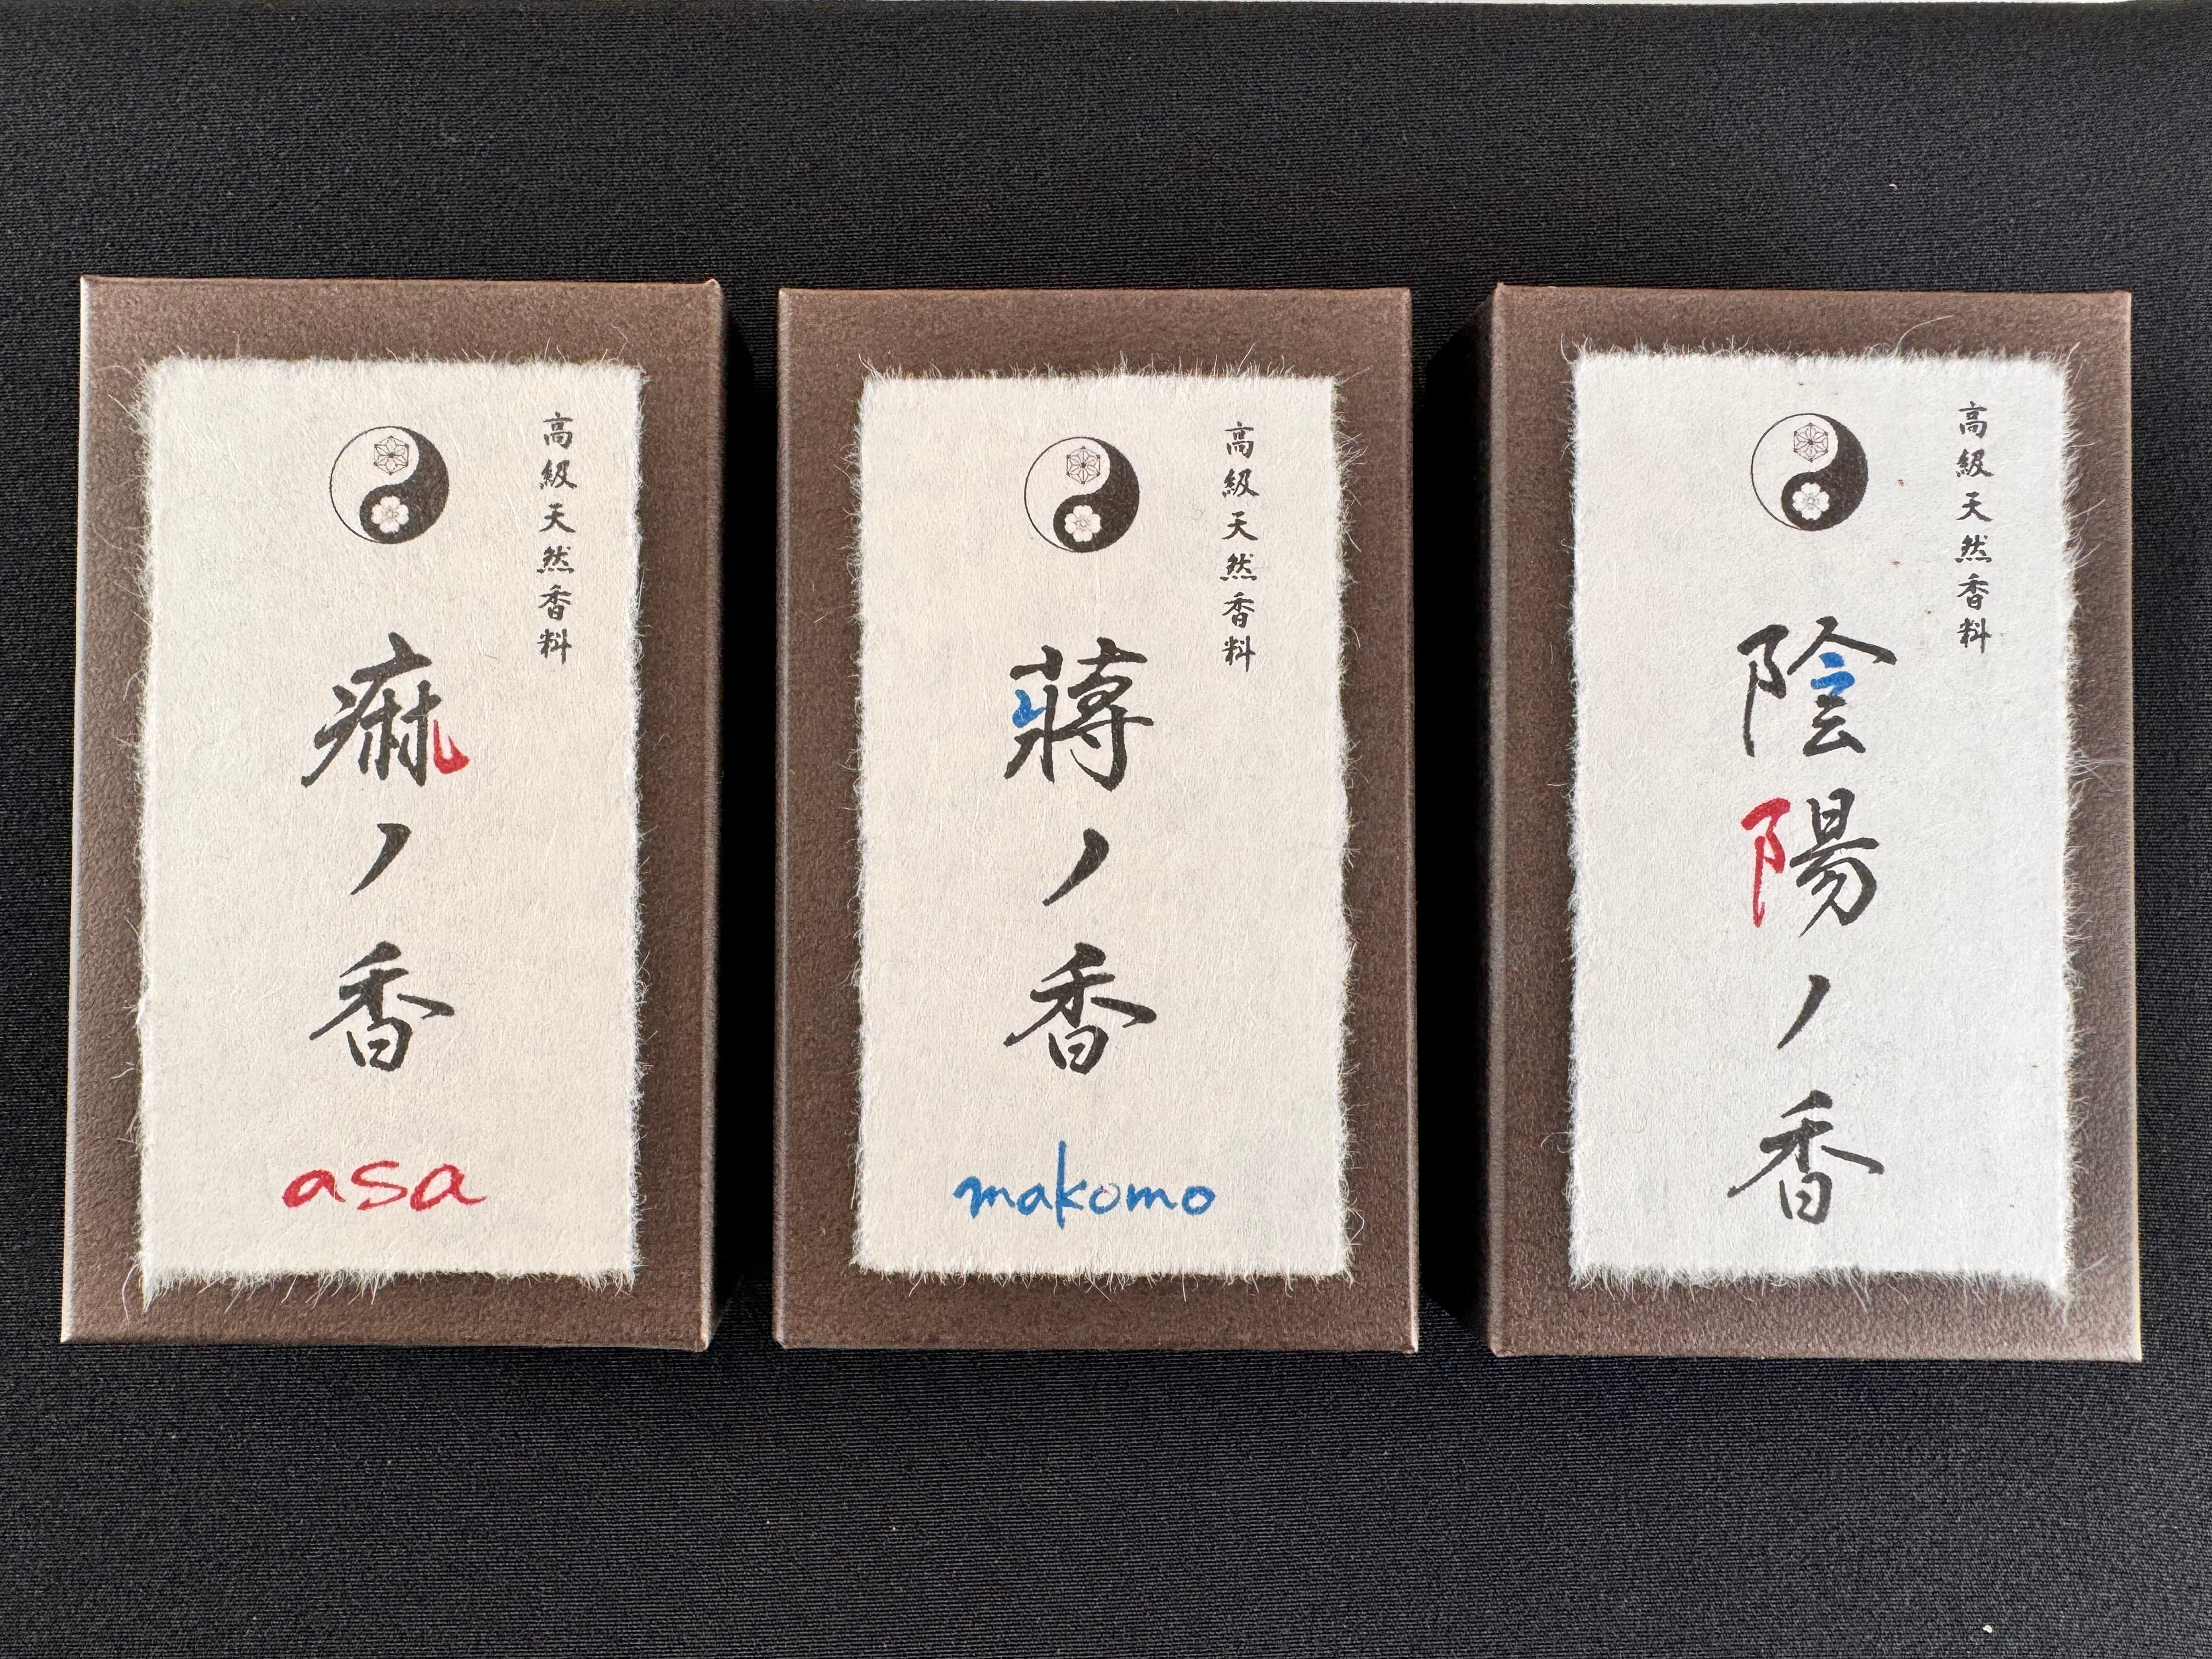 高級天然香料
麻ノ香
asa
高級天然香料
蔣ノ香
makomo
高級天然香料
陰陽ノ香